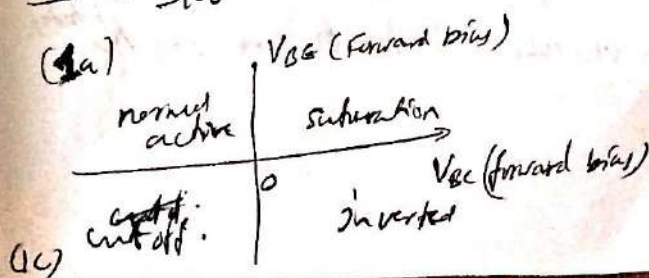 (1a)
V_BE (Forward bias)
normal
active
saturation
0
V_BC (forward bias)
cutoff.
inverted
(1c)